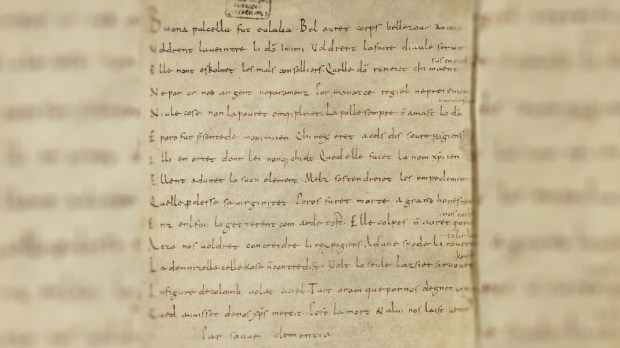 Buona pulcella fut eulalia. Bel auret corps bellezour anima
Voldrent la ueintre li dō inimi. Voldrent la faire diaule seruir
Elle nont eskoltet les mals conselliers. Quelle dō raneiet chi maent
sus en ciel
Ne por or ned argent ne paramenz. Por manatce regiel ne preiement
Niule cose non la pouret omq; pleier. La polle sempre n amast lo dō
E poro fut p̄sentede maximiien. Chi rex eret a cels dis soure pagiens
Il li en ortet dont lei nonq; chielt. Qued elle fuiet lo nom xp̄iien
Ellent adunet lo suon element. Melz sostendreiet les empedementz
Quelle p̄desse sa uirginitet. Poros furet morte a grand honestet
Enz enl fou lo getterent com arde tost. Elle colpes n auret
A czo nos uoldret concreidre li rex pagiens. Ad une spede li roueret
La domnizelle celle kose n contredist. Volt lo seule lazsier si ruouet
In figure de colomb uolat a ciel. Tuit oram que por nos degnet
Qued auuisset de nos xp̄s mercit. Post la mort & a lui nos laist uenir
Par souue clementia